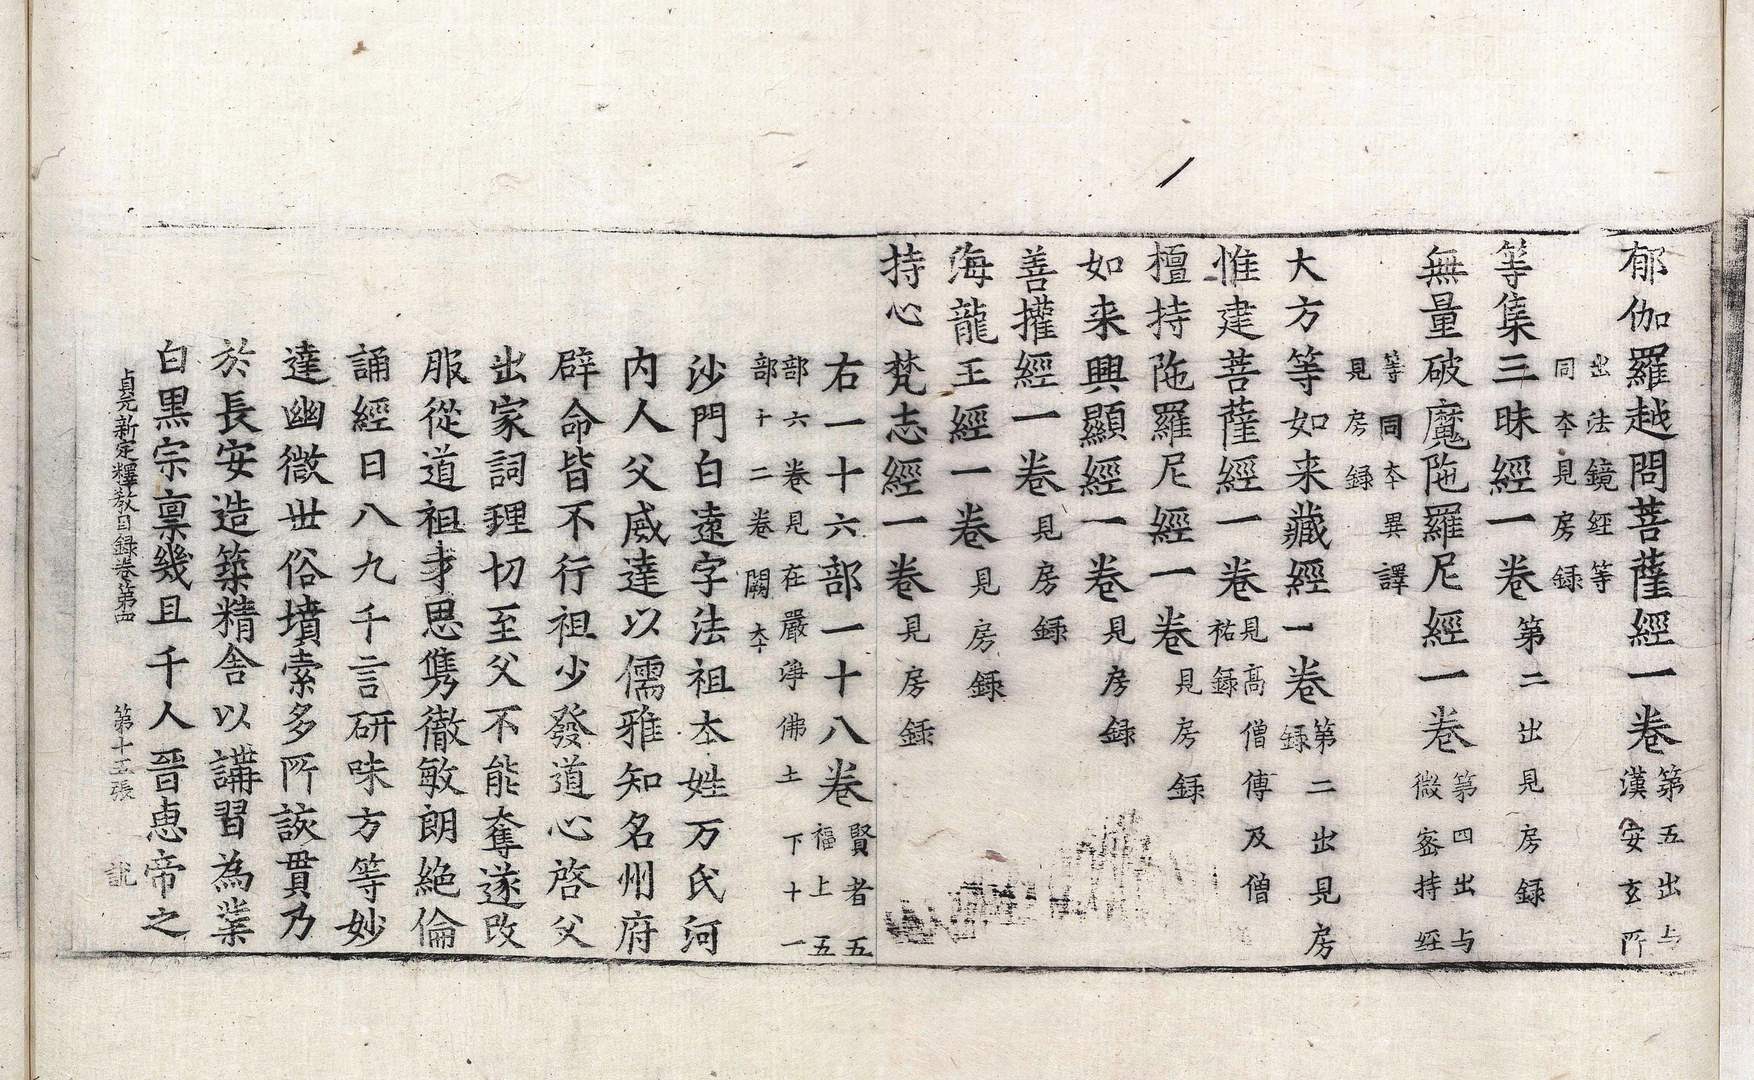 郁伽羅越問菩薩經一卷第五出与漢安玄所
出法鏡經等同夲見房録
等集三昧經一卷第二出見房録
無量破魔陁羅尼經一卷第四出与微密持経
等同夲異譯見房録
大方等如来藏經一卷第二出見房録
惟逮菩薩經一卷見高僧傳及僧祐録
檀持陁羅尼經一卷見房録
如来興顯經一卷見房録
善權經一卷見房録
海龍王經一卷見房録
持心梵志經一卷見房録
右一十六部一十八卷賢者五福上五
部六卷見在嚴淨佛土下十一部十二卷闕夲
沙門白遠字法祖夲姓万氏河
内人父威達以儒雅知名州府
辟命皆不行祖少發道心啓父
出家詞理切至父不能奪遂改
服從道祖才思雋徹敏朗絶倫
誦經日八九千言研味方等妙
達幽微世俗墳索多所該貫乃
於長安造築精舍以講習為業
白黒宗稟幾且千人晉惠帝之
貞元新定釋教目録卷第四 第十五張 説